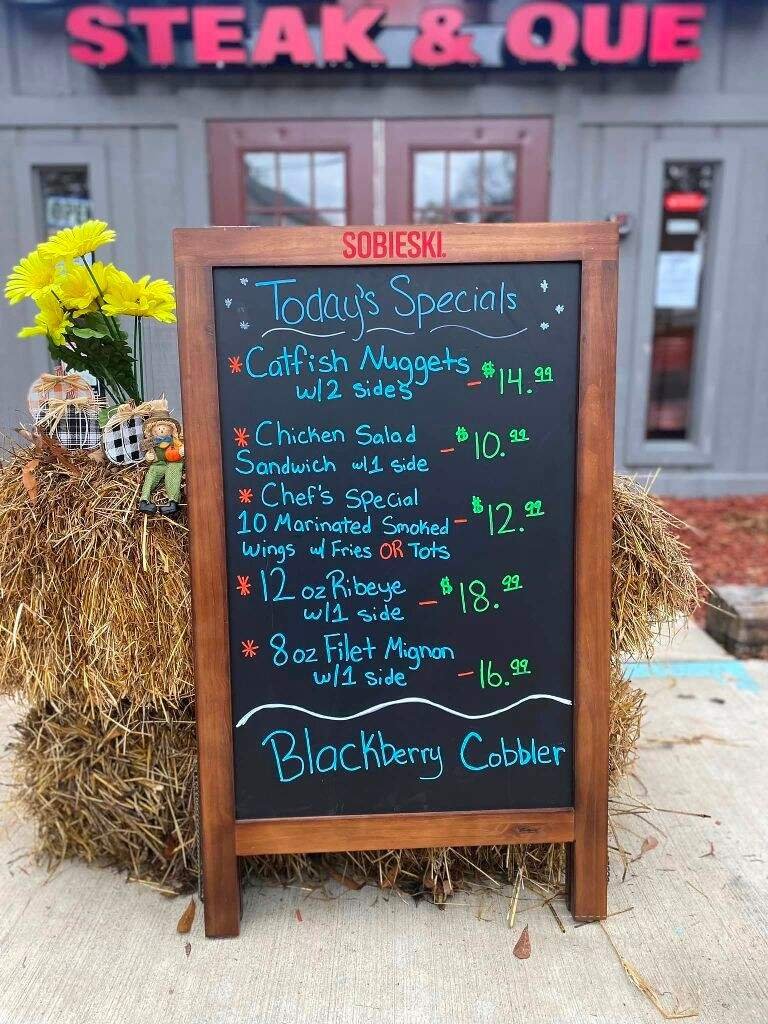 STEAK & QUE
OPEN
SOBIESKI.
Today's Specials
* Catfish Nuggets - $14.99
w/2 sides
* Chicken Salad - $10.99
Sandwich w/1 side
* Chef's Special
10 Marinated Smoked - $12.99
wings w/ Fries OR Tots
* 12 oz Ribeye - $18.99
w/1 side
* 8oz Filet Mignon
w/1 side - 16.99
Blackberry Cobbler